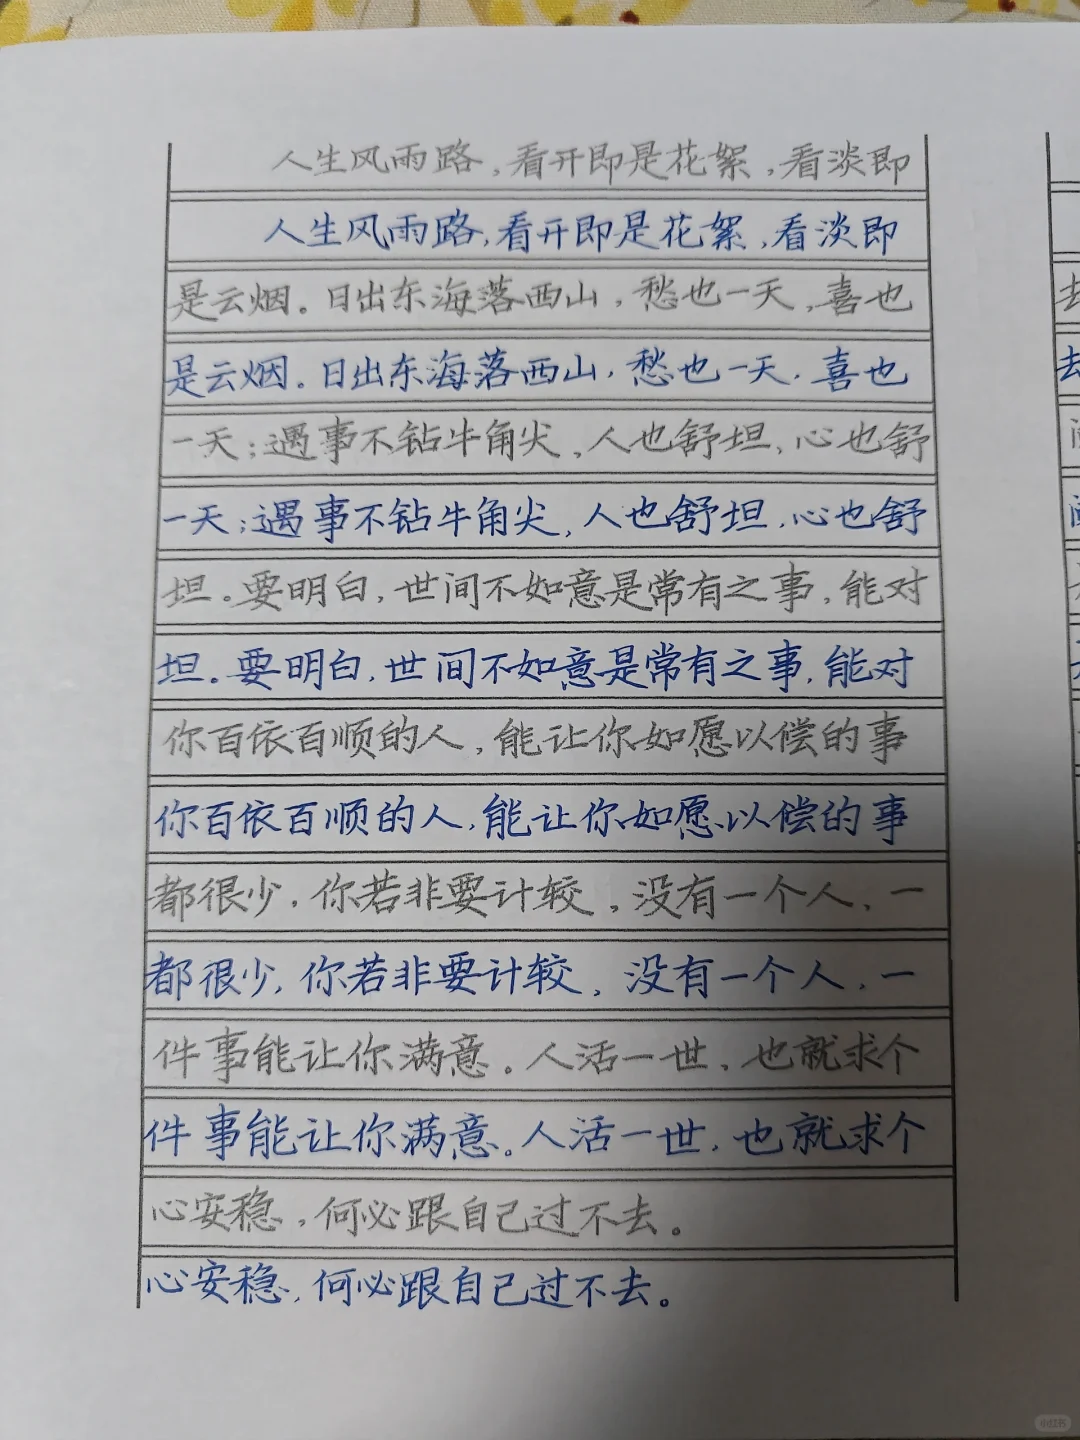 人生风雨路,看开即是花絮,看淡即
人生风雨路,看开即是花絮,看淡即
是云烟。日出东海落西山,愁也一天,喜也
是云烟。日出东海落西山,愁也一天,喜也
一天;遇事不钻牛角尖,人也舒坦,心也舒
一天;遇事不钻牛角尖,人也舒坦,心也舒
坦。要明白,世间不如意是常有之事,能对
坦。要明白,世间不如意是常有之事,能对
你百依百顺的人,能让你如愿以偿的事
你百依百顺的人,能让你如愿以偿的事
都很少,你若非要计较,没有一个人,一
都很少,你若非要计较,没有一个人,一
件事能让你满意。人活一世,也就求个
件事能让你满意。人活一世,也就求个
心安稳,何必跟自己过不去。
心安稳,何必跟自己过不去。
去
去
小红书